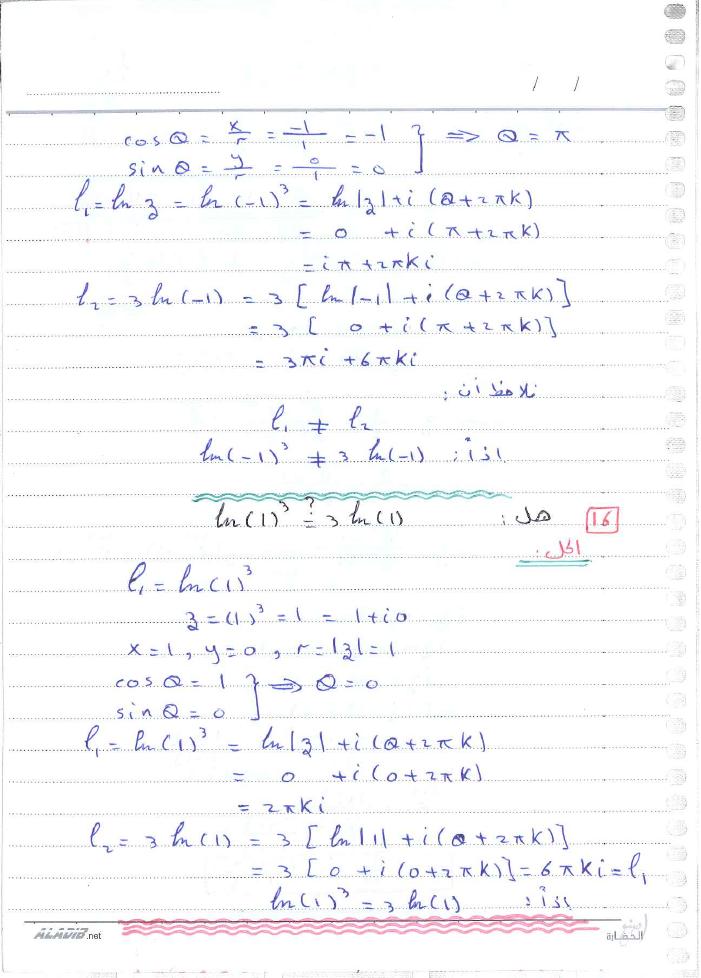 / /
cos θ = x/r = -1/1 = -1 } ⇒ θ = π
sin θ = y/r = 0/1 = 0
l₁ = ln z = ln (-1)³ = ln|z| + i (θ + 2πk)
= 0 + i (π + 2πk)
= iπ + 2πki
l₂ = 3 ln (-1) = 3 [ ln|-1| + i (θ + 2πk) ]
= 3 [ 0 + i (π + 2πk) ]
= 3πi + 6πki
نلاحظ أن :
l₁ ≠ l₂
اذاً : ln(-1)³ ≠ 3 ln(-1)
16 هل : ln(1)³ ≟ 3 ln(1)
الحل :
l₁ = ln(1)³
z = (1)³ = 1 = 1 + i0
x = 1 , y = 0 , r = |z| = 1
cos θ = 1 } ⇒ θ = 0
sin θ = 0
l₁ = ln(1)³ = ln|z| + i (θ + 2πk)
= 0 + i (0 + 2πk)
= 2πki
l₂ = 3 ln(1) = 3 [ ln|1| + i (θ + 2πk) ]
= 3 [ 0 + i (0 + 2πk) ] = 6πki = l₁
اذاً : ln(1)³ = 3 ln(1)
ALADIB.net
الحضارة